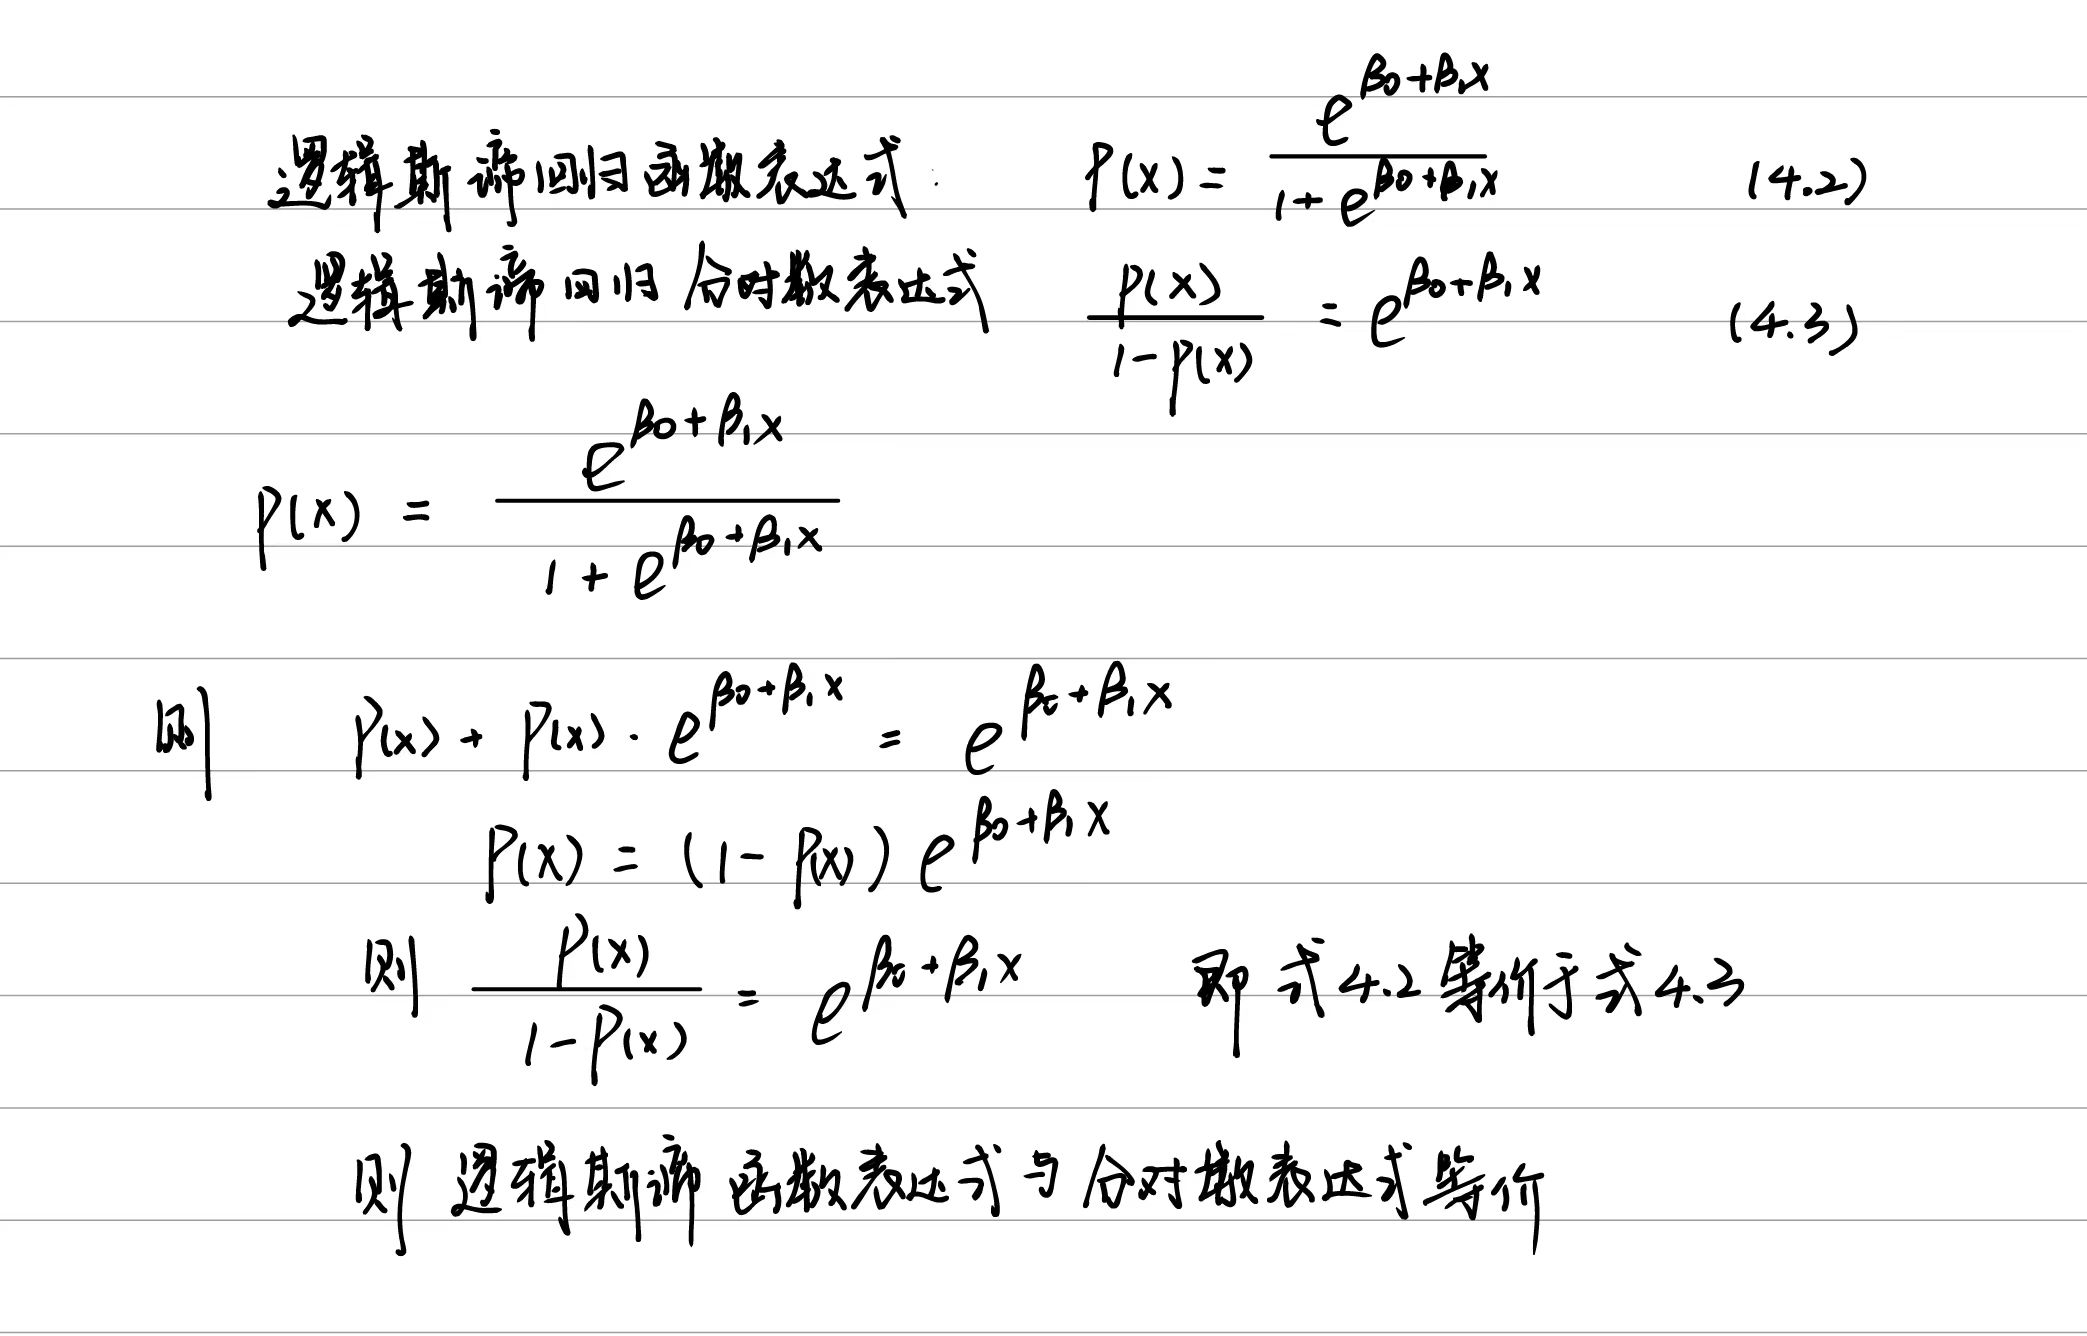 逻辑斯谛回归函数表达式 P(x) = \frac{e^{β_0+β_1x}}{1+e^{β_0+β_1x}} (4.2)
逻辑斯谛回归分对数表达式 \frac{P(x)}{1-P(x)} = e^{β_0+β_1x} (4.3)
P(x) = \frac{e^{β_0+β_1x}}{1+e^{β_0+β_1x}}
则 P(x) + P(x) · e^{β_0+β_1x} = e^{β_0+β_1x}
P(x) = (1-P(x)) e^{β_0+β_1x}
则 \frac{P(x)}{1-P(x)} = e^{β_0+β_1x} 即式4.2等价于式4.3
则逻辑斯谛函数表达式与分对数表达式等价